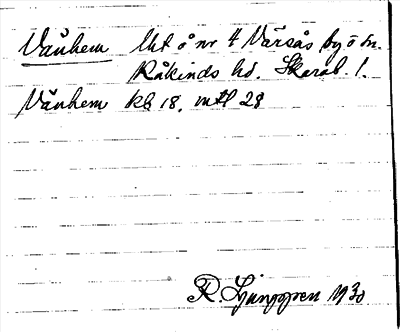 Vånhem Ut å nr 4 Värsås by ö sn.
Kåkinds hd. Skarab. l.
Vånhem kb 18, mtl 28
R. Ljunggren 1930